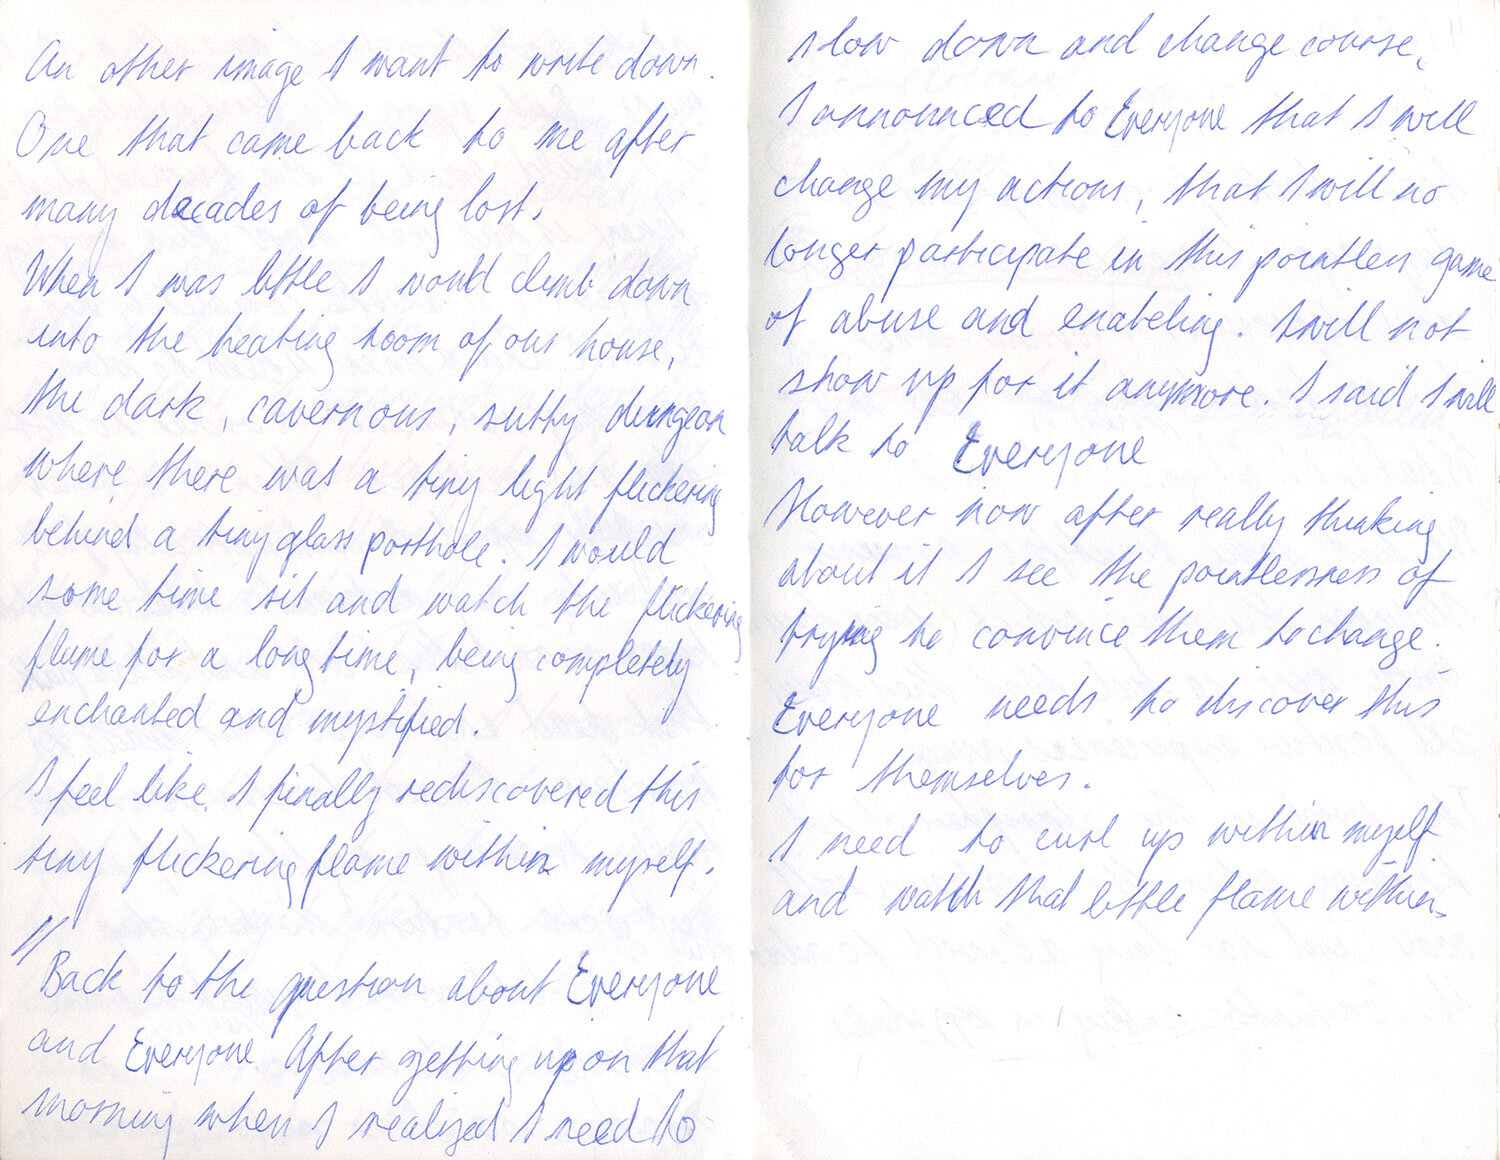 An other image I want to write down.
One that came back to me after
many decades of being lost.
When I was little I would climb down
into the heating room of our house,
the dark, cavernous, sutty dungeon
where there was a tiny light flickering
behind a tiny glass porthole. I would
some time sit and watch the flickering
flame for a long time, being completely
enchanted and mystified.
I feel like I finally rediscovered this
tiny flickering flame within myself.
//
Back to the question about Everyone
and Everyone. After getting up on that
morning when I realized I need to
slow down and change course,
I announced to Everyone that I will
change my actions, that I will no
longer participate in this pointless game
of abuse and enabeling. I will not
show up for it anymore. I said I will
talk to Everyone
However now after really thinking
about it I see the pointlessness of
trying to convince them to change.
Everyone needs to discover this
for themselves.
I need to curl up within myself
and watch that little flame within.